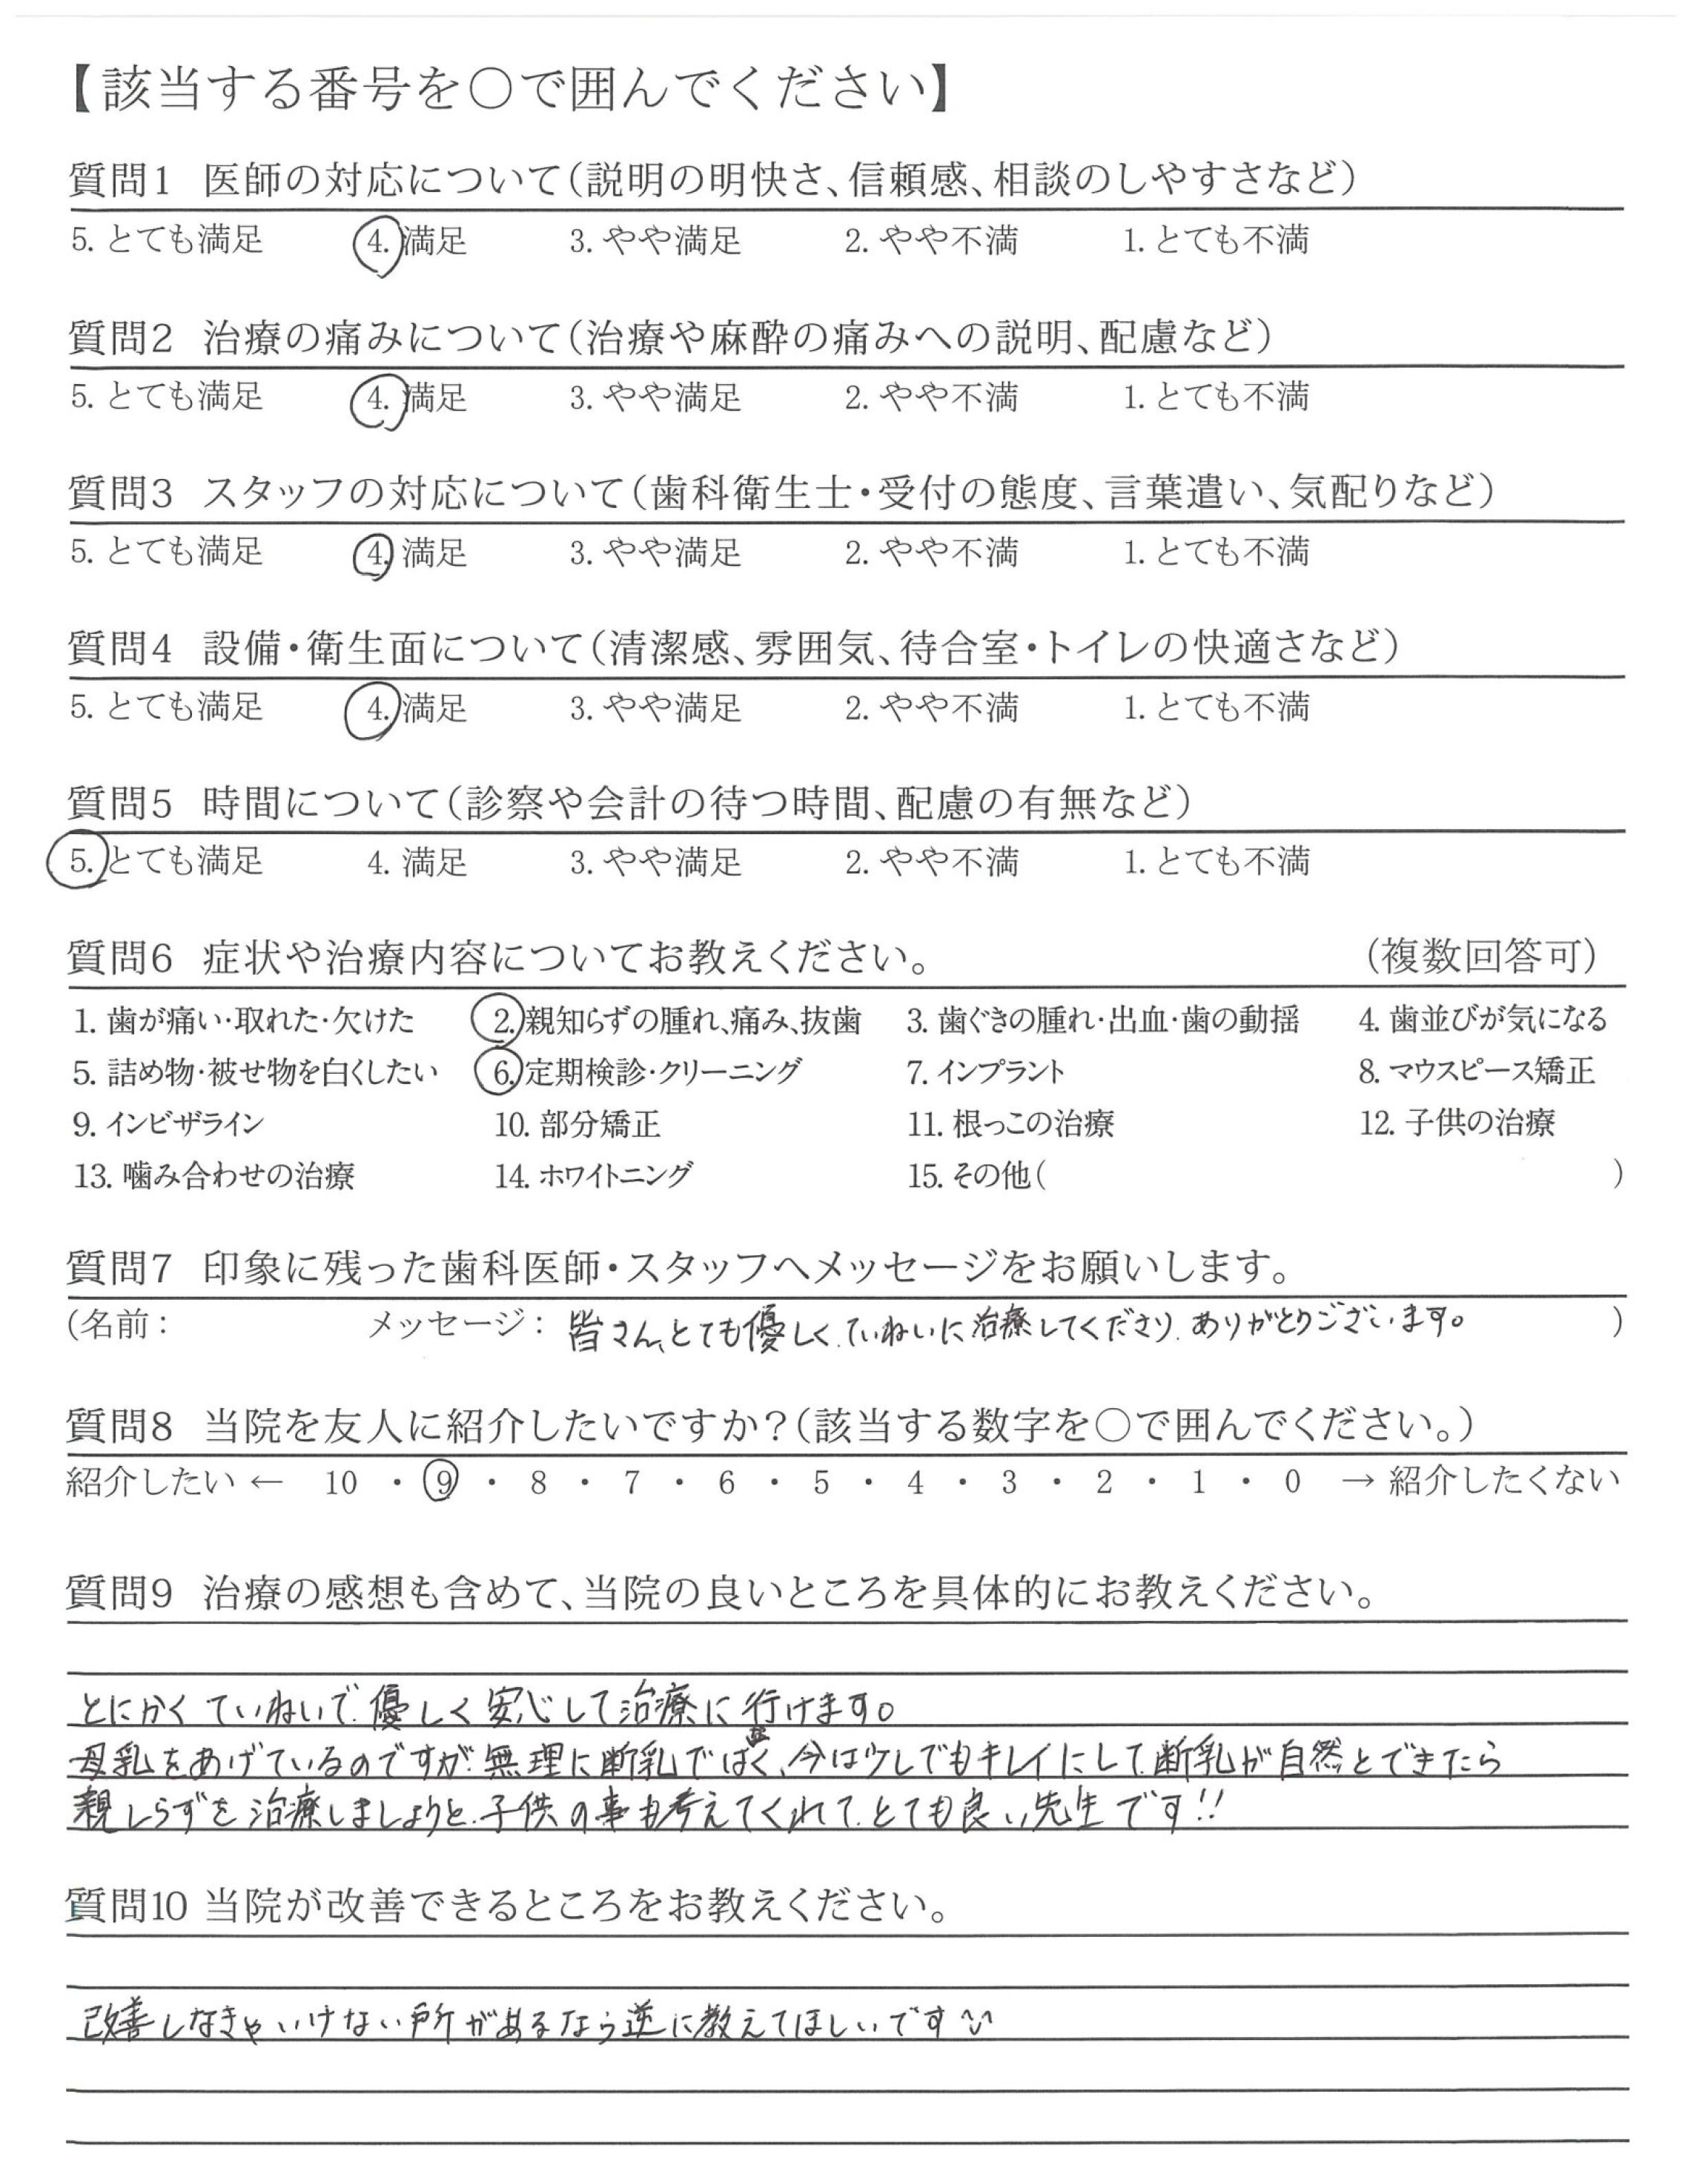 【該当する番号を○で囲んでください】
質問1 医師の対応について(説明の明快さ、信頼感、相談のしやすさなど)
5. とても満足 4. 満足 3. やや満足 2. やや不満 1. とても不満
質問2 治療の痛みについて(治療や麻酔の痛みへの説明、配慮など)
5. とても満足 4. 満足 3. やや満足 2. やや不満 1. とても不満
質問3 スタッフの対応について(歯科衛生士・受付の態度、言葉遣い、気配りなど)
5. とても満足 4. 満足 3. やや満足 2. やや不満 1. とても不満
質問4 設備・衛生面について(清潔感、雰囲気、待合室・トイレの快適さなど)
5. とても満足 4. 満足 3. やや満足 2. やや不満 1. とても不満
質問5 時間について(診察や会計の待つ時間、配慮の有無など)
5. とても満足 4. 満足 3. やや満足 2. やや不満 1. とても不満
質問6 症状や治療内容についてお教えください。 (複数回答可)
1. 歯が痛い・取れた・欠けた 2. 親知らずの腫れ、痛み、抜歯 3. 歯ぐきの腫れ・出血・歯の動揺 4. 歯並びが気になる
5. 詰め物・被せ物を白くしたい 6. 定期検診・クリーニング 7. インプラント 8. マウスピース矯正
9. インビザライン 10. 部分矯正 11. 根っこの治療 12. 子供の治療
13. 噛み合わせの治療 14. ホワイトニング 15. その他( )
質問7 印象に残った歯科医師・スタッフへメッセージをお願いします。
(名前: メッセージ: 皆さん、とても優しく、ていねいに治療してくださり、ありがとうございます。 )
質問8 当院を友人に紹介したいですか?(該当する数字を○で囲んでください。)
紹介したい ← 10 ・ 9 ・ 8 ・ 7 ・ 6 ・ 5 ・ 4 ・ 3 ・ 2 ・ 1 ・ 0 → 紹介したくない
質問9 治療の感想も含めて、当院の良いところを具体的にお教えください。
とにかくていねいで、優しく安心して治療に行けます。
母乳をあげているのですが、無理に断乳ではなく、今は少しでもキレイにして、断乳が自然とできたら
親しらずを治療しましょうと、子供の事も考えてくれて、とても良い先生です!!
質問10 当院が改善できるところをお教えください。
改善しなきゃいけない所があるなら逆に教えてほしいです